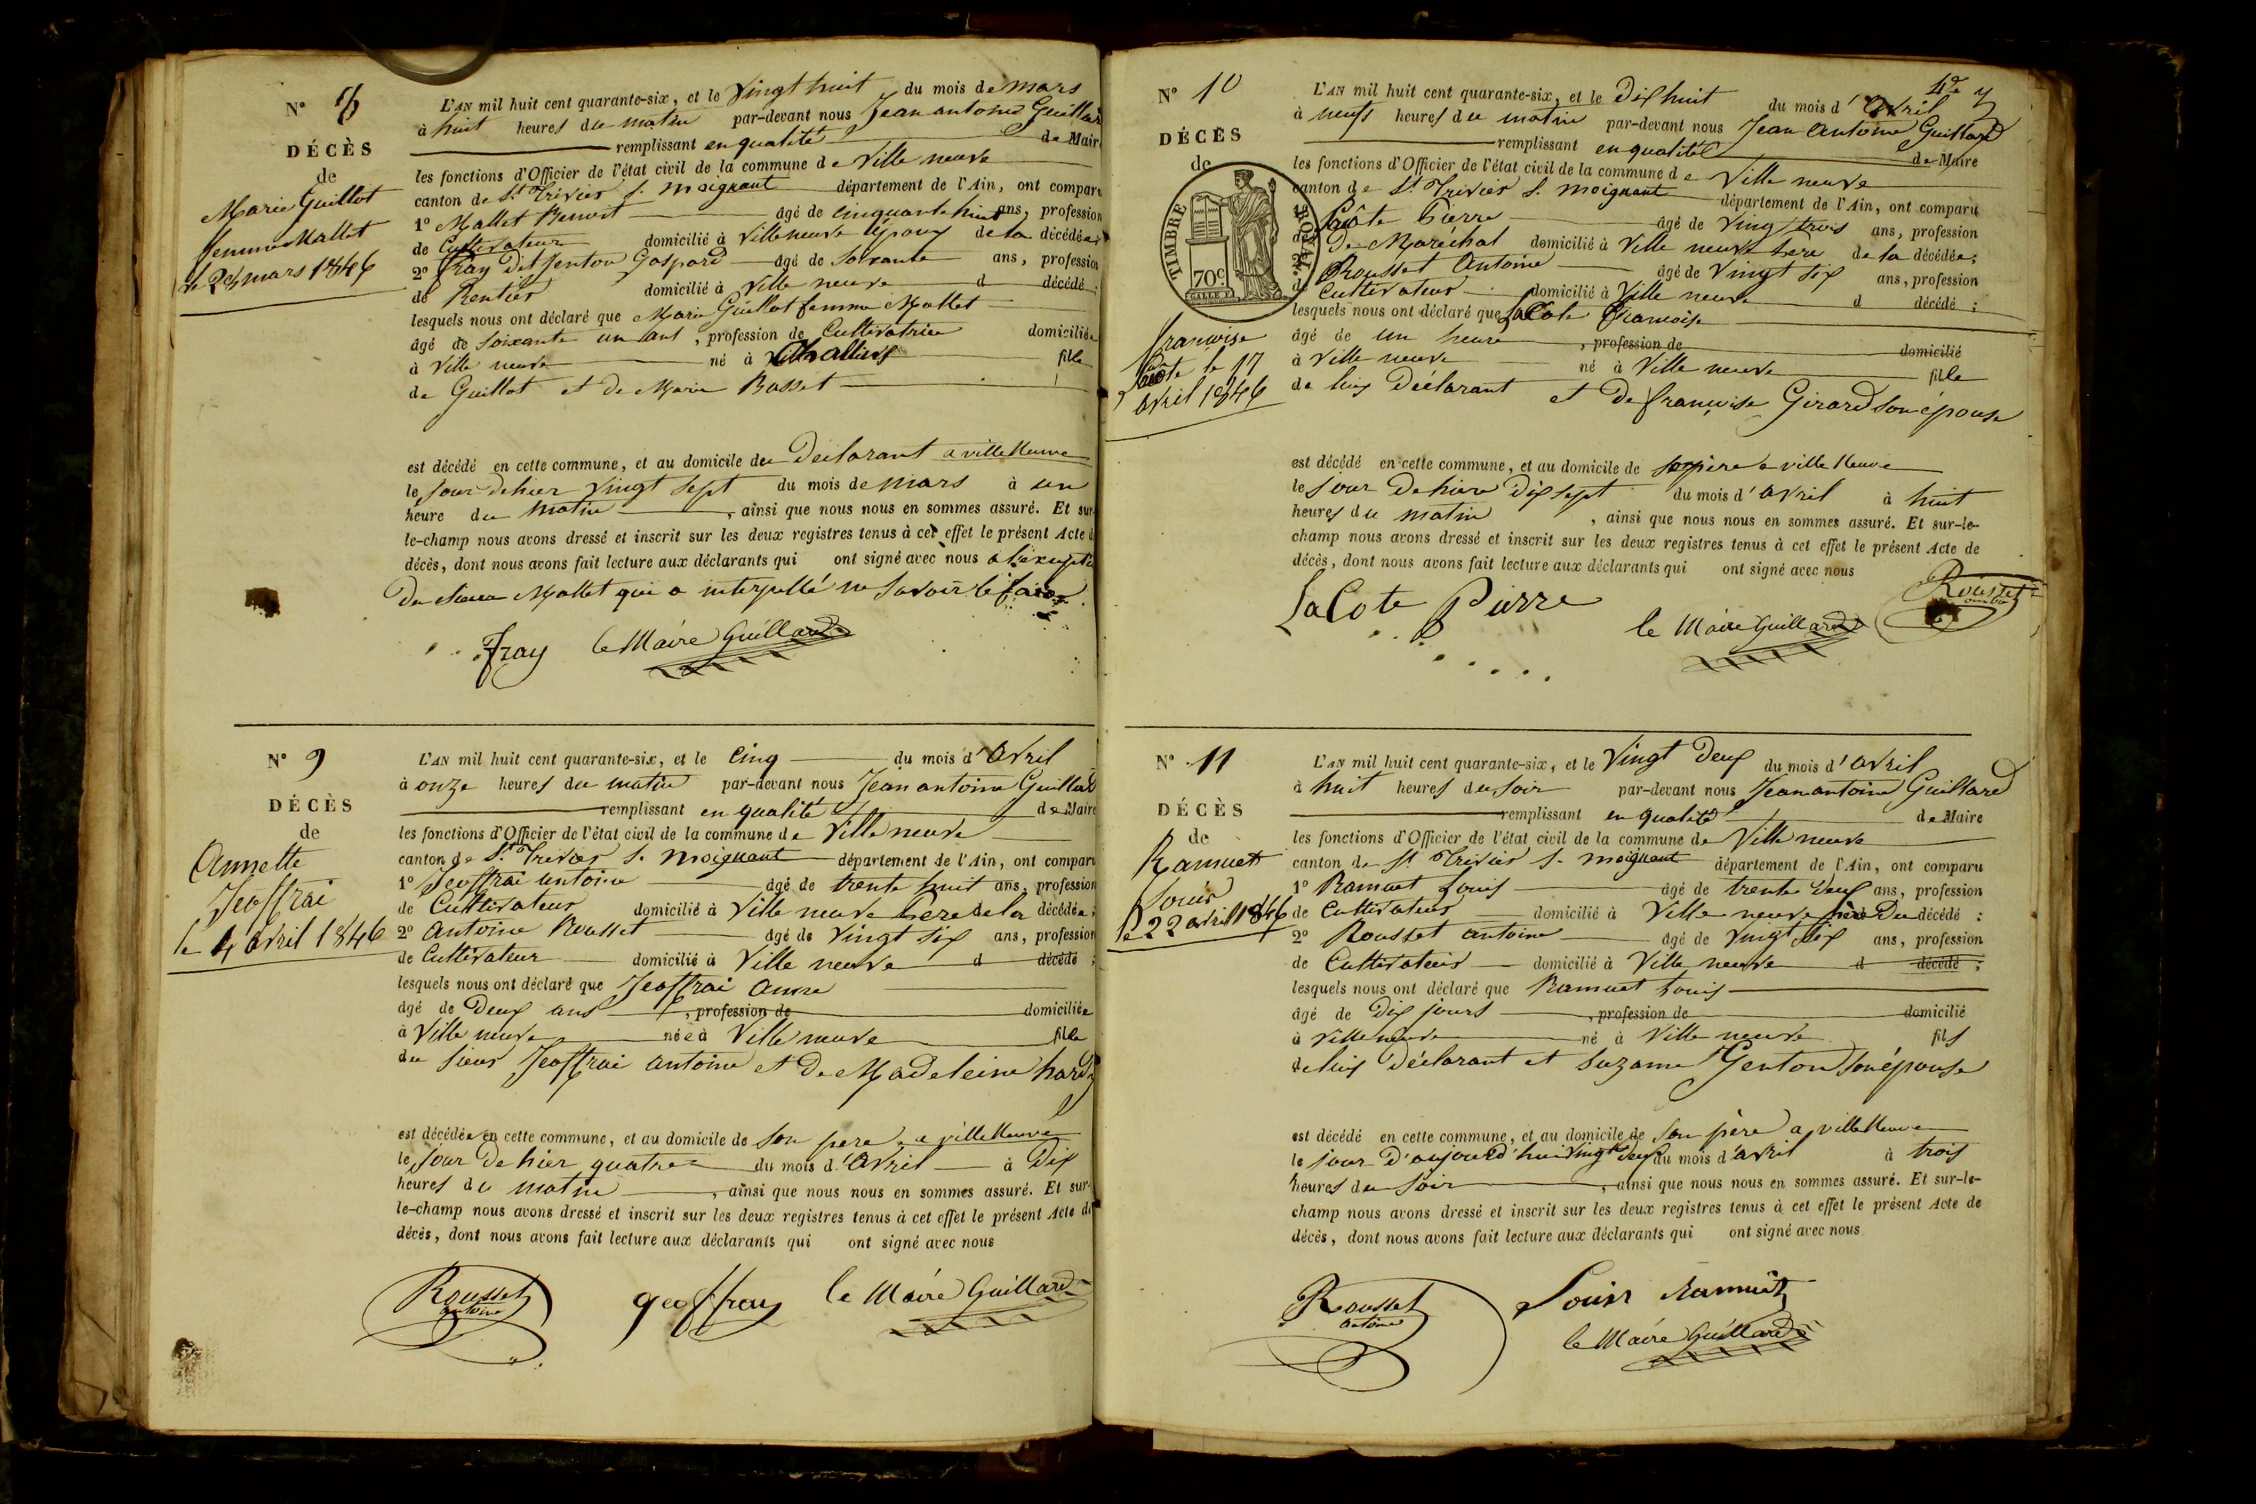 N° 8
DÉCÈS
de
Marie Guillot
femme Mallet
le 27 mars 1846
L'AN mil huit cent quarante-six, et le Vingt huit du mois de Mars
à huit heures du matin par-devant nous Jean antoine Guillard
remplissant en qualité de Maire
les fonctions d'Officier de l'état civil de la commune de Ville neuve
canton de St Trivier s. moignant département de l'Ain, ont comparu
1° Mallet Benoit âgé de Cinquante huit ans, profession
de Cultivateur domicilié à Villeneuve époux de la décédée;
2° Fray Dit Jenton Gaspard âgé de Soixante ans, profession
de Rentier domicilié à Ville neuve d décédé;
lesquels nous ont déclaré que Marie Guillot femme Mallet
âgé de Soixante un ans, profession de Cultivatrice domiciliée
à Ville neuve né à fille
de Guillot et de Marie Basset
est décédé en cette commune, et au domicile du Déclarant a villeNeuve
le jour Dehier vingt sept du mois de Mars à un
heure du Matin, ainsi que nous nous en sommes assuré. Et sur-
le-champ nous avons dressé et inscrit sur les deux registres tenus à cet effet le présent Acte d
décès, dont nous avons fait lecture aux déclarants qui ont signé avec nous a l'exeption
Du Mallet qui a interpellé ne savoir le faire
fray le Maire Guillard
N° 9
DÉCÈS
de
Annette
Jeoffrai
le 4 avril 1846
L'AN mil huit cent quarante-six, et le Cinq du mois d'Avril
à onze heures du matin par-devant nous Jean antoine Guillard
remplissant en qualité de Maire
les fonctions d'Officier de l'état civil de la commune de Ville neuve
canton de St Trivier s. moignant département de l'Ain, ont comparu
1° Jeoffrai antoine âgé de trente huit ans, profession
de Cultivateur domicilié à Ville neuve Pere de la décédée;
2° Antoine Rousset âgé de Vingt six ans, profession
de Cultivateur domicilié à Ville neuve d décédé;
lesquels nous ont déclaré que Jeoffrai Anne
âgé de Deux ans, profession de domiciliée
à Ville neuve née à Ville neuve fille
du sieur Jeoffrai antoine et De Madeleine
est décédée en cette commune, et au domicile de son pere a villeNeuve
le jour De hier quatre du mois d'Avril à Dix
heures du matin, ainsi que nous nous en sommes assuré. Et sur-
le-champ nous avons dressé et inscrit sur les deux registres tenus à cet effet le présent Acte de
décès, dont nous avons fait lecture aux déclarants qui ont signé avec nous
Rousset
antoine
geoffray le Maire Guillard
N° 10
DÉCÈS
de
TIMBRE ROYAL
70c.
françoise
Lacote le 17
avril 1846
L'AN mil huit cent quarante-six, et le Dix huit du mois d'Avril
à neufs heures du matin par-devant nous Jean Antoine Guillard
remplissant en qualité de Maire
les fonctions d'Officier de l'état civil de la commune de Ville neuve
canton de St Trivier s. moignant département de l'Ain, ont comparu
1° Lacôte Pierre âgé de Vingt trois ans, profession
de De Maréchal domicilié à Ville neuve Pere de la décédée;
2° Rousset Antoine âgé de Vingt six ans, profession
de Cultivateur domicilié à Ville neuve d décédé;
lesquels nous ont déclaré que LaCote françoise
âgé de un heure, profession de domicilié
à Ville neuve né à Ville neuve fille
de lui Déclarant et De françoise Girard son épouse
est décédé en cette commune, et au domicile de son père a ville Neuve
le jour De hier Dix sept du mois d'Avril à huit
heures du matin, ainsi que nous nous en sommes assuré. Et sur-le-
champ nous avons dressé et inscrit sur les deux registres tenus à cet effet le présent Acte de
décès, dont nous avons fait lecture aux déclarants qui ont signé avec nous
LaCote Pierre
le Maire Guillard
Rousset
N° 11
DÉCÈS
de
Ramuet
Louis
le 22 avril 1846
L'AN mil huit cent quarante-six, et le Vingt Deux du mois d'Avril
à huit heures du soir par-devant nous Jean antoine Guillard
remplissant en qualité de Maire
les fonctions d'Officier de l'état civil de la commune de Ville neuve
canton de St Trivier s. moignant département de l'Ain, ont comparu
1° Ramuet Louis âgé de trente deux ans, profession
de Cultivateur domicilié à Ville neuve père Du décédé;
2° Rousset antoine âgé de Vingt six ans, profession
de Cultivateur domicilié à Ville neuve d décédé;
lesquels nous ont déclaré que Ramuet Louis
âgé de Dix jours, profession de domicilié
à Ville neuve né à Ville neuve fils
de lui Déclarant et Suzanne Genton son épouse
est décédé en cette commune, et au domicile de son père a villeNeuve
le jour D'aujourd'hui vingt deux du mois d'avril à trois
heures du soir, ainsi que nous nous en sommes assuré. Et sur-le-
champ nous avons dressé et inscrit sur les deux registres tenus à cet effet le présent Acte de
décès, dont nous avons fait lecture aux déclarants qui ont signé avec nous
Rousset
antoine
Louis Ramuet
le Maire Guillard